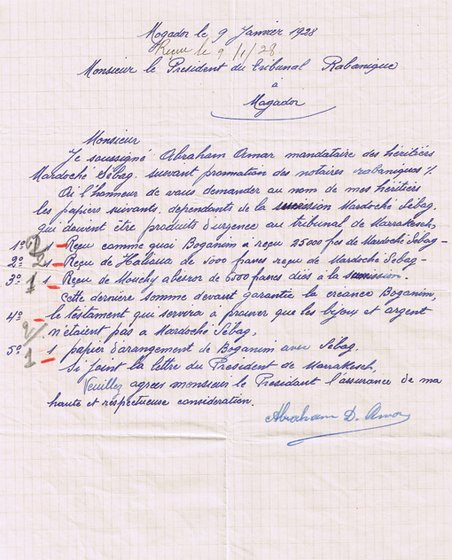 Mogador le 9 Janvier 1928
Recu le 9/1/28
Monsieur le President du tribunal Rabanique
à
Mogador
Monsieur
Je soussigné Abraham Amar mandataire des héritiers
Mardoché Sebag. suivant procuration des notaires rabaniques %
Ai l'honneur de vous demander au nom de mes héritiers
les papiers suivants, dependants de la succession Mardoche Sebag,
qui doivent être produits d'urgence au tribunal de Marrakesch,
1º 2 - Reçu comme quoi Boganim a reçu 25000 frs de Mardoché Sebag -
2º 2 - Reçu de de 5000 francs reçu de Mardoché Sebag -
3º 1 - Reçu de de 6500 francs dûs à la succession!
Cette derniere somme devant garantie la créance Boganim,
4º - le testament qui servira à prouver que les bijoux et argent
n'étaient pas a Mardoche Sebag,
5º 1 - 1 papier d'arangement de Boganim avec Sebag.
Si Joint la lettre du President de Marrakesch,
Veuillez agrées monsieur le President l'assurance de ma
haute et respectueuse consideration.
Abraham D. Amar